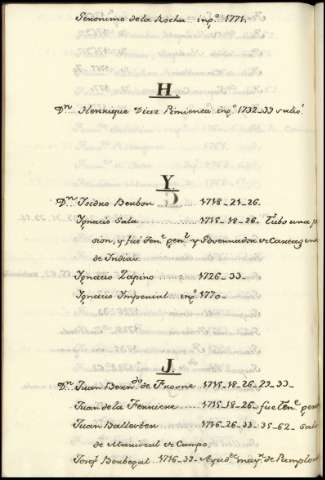 Geronimo de la Rocha ing.º 1771.
H
D.n Henrique Diaz Pimienta ing.º 1732-33 salió
Y
D.n Isidro Bonbon ....... 1718-21-26.
Ignacio Sala ....... 1715-18-26. Tubo una
sion, y fué Ten.e gen.l y Governador de Cartagena
de Indias
Ignacio Zapino ....... 1726-33.
Ignacio Imperial ing.º 1770.
J.
D.n Juan Bern.do de Frosne 1715-18-26-29-33
Juan de la Ferriere ..... 1715-18-26- fue Ten.e gen
Juan Ballerbon 1716-26-33-35-62-
de Mariscal de Campo
Josef Bonbegal 1716-33- Ayud.e may.r de Pamplona